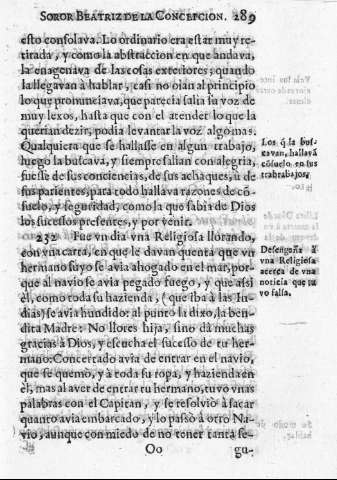 SOROR BEATRIZ DE LA CONCEPCION. 289
esto consolava. Lo ordinario era estar muy re-
tirada, y como la abstraccion en que andava,
la enagenava de las cosas exteriores, quando
la llegavan à hablar, casi no oian al principio
lo que pronunciava, que parecia salia su voz de
muy lexos, hasta que con el atender lo que la
querian dezir, podia levantar la voz algo mas.
Qualquiera que se hallasse en algun trabajo,
luego la buscava, y siempre salian con alegria,
fuesse de sus conciencias, de sus achaques, ù de
sus parientes, para todo hallava razones de cõ-
suelo, y seguridad, como la que sabia de Dios
los sucessos presentes, y por venir.
Los q̃ la bus-
cavan, hallavã
cõsuelo en sus
trabrabajos.
232 Fue vn dia vna Religiosa llorando,
con vna carta, en que le davan quenta que vn
hermano suyo se avia ahogado en el mar, por-
que al navio se avia pegado fuego, y que assi
èl, como toda su hazienda, (que iba à las In-
dias) se avia hundido: al punto la dixo, la ben-
dita Madre: No llores hija, sino dà muchas
gracias à Dios, y escucha el sucesso de tu her-
mano: Concertado avia de entrar en el navio,
que se quemò, y à toda su ropa, y hazienda en
èl, mas al aver de entrar tu hermano, tuvo vnas
palabras con el Capitan, y se resolviò à sacar
quanto avia embarcado, y lo passò à otro Na-
vio, aunque con miedo de no tener tanta se-
Desengaña à
vna Religiosa
acerca de vna
noticia que tu
vo falsa.
Oo
gu-